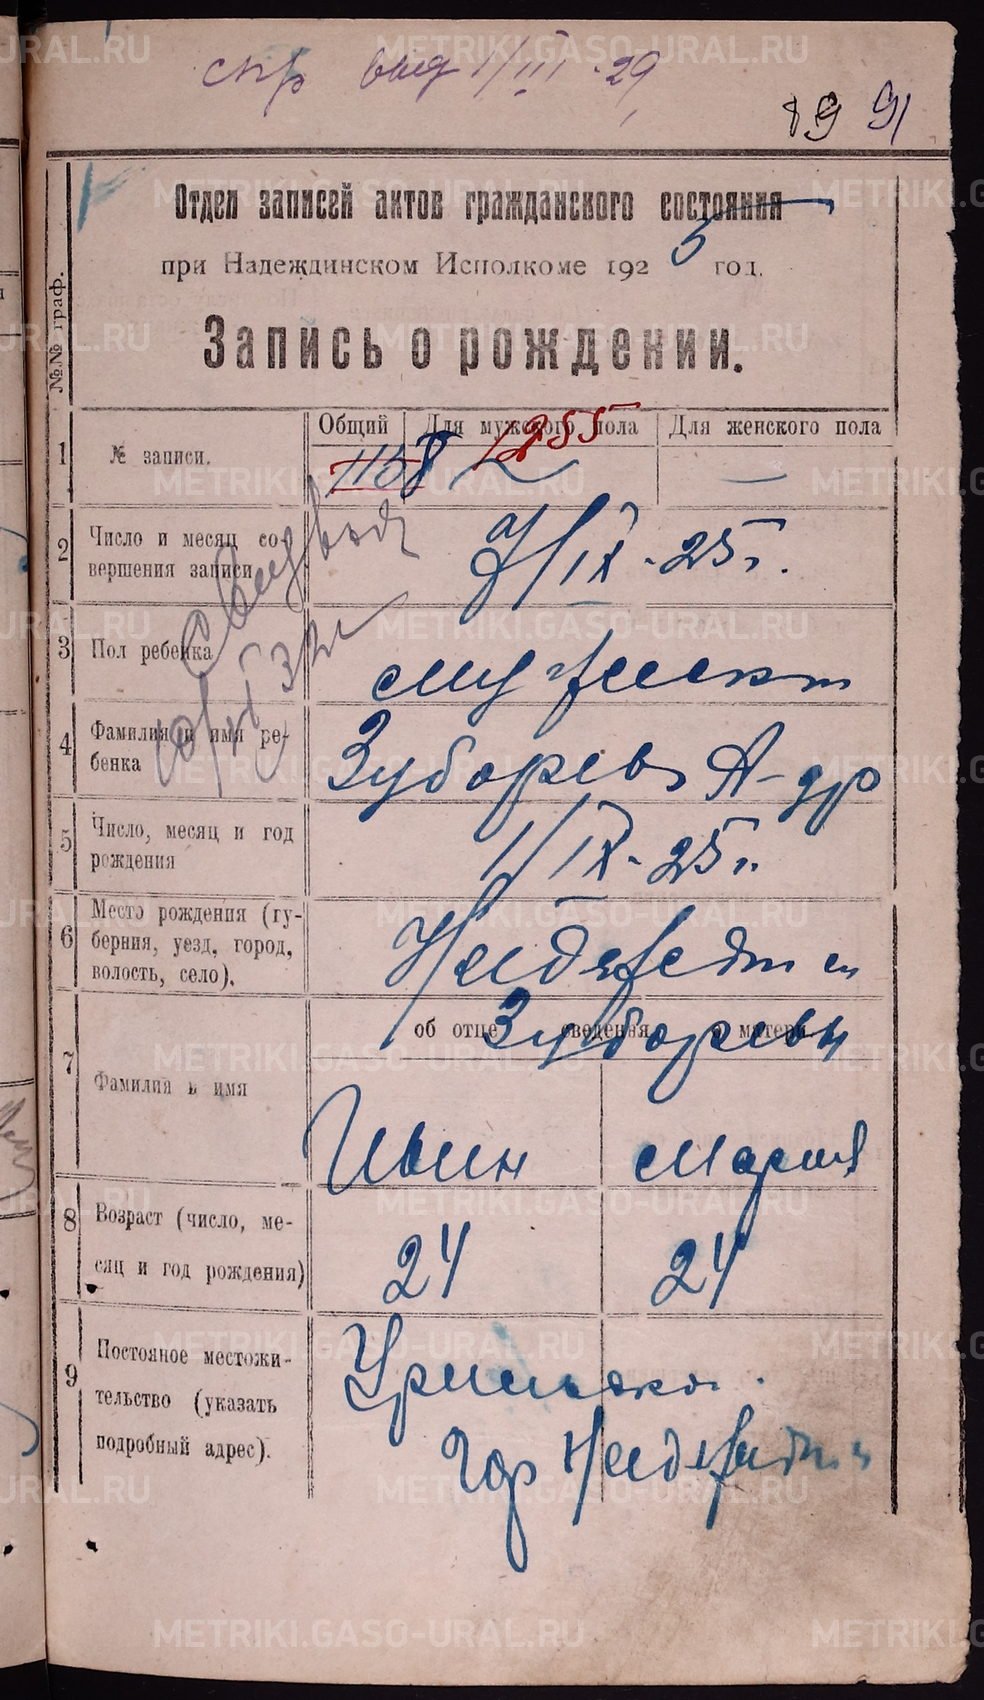 спр выд 1/III-29
89 91
Отдел записей актов гражданского состояния
при Надеждинском Исполкоме 1925 год.
Запись о рождении.
№№ граф.
Общий Для мужского пола Для женского пола
1 № записи. 1158 1255
2 Число и месяц совершения записи 7/IX-25г.
Свид выд
3 Пол ребенка мужскт
4 Фамилия и имя ребенка Зуборев А-др
5 Число, месяц и год рождения 1/IX-25г.
6 Место рождения (губерния, уезд, город, волость, село).
об отце сведения о матери
Зуборевы
7 Фамилия и имя
Иван Мария
8 Возраст (число, месяц и год рождения) 24 24
9 Постояное местожительство (указать подробный адрес).
гор
METRIKI.GASO-URAL.RU